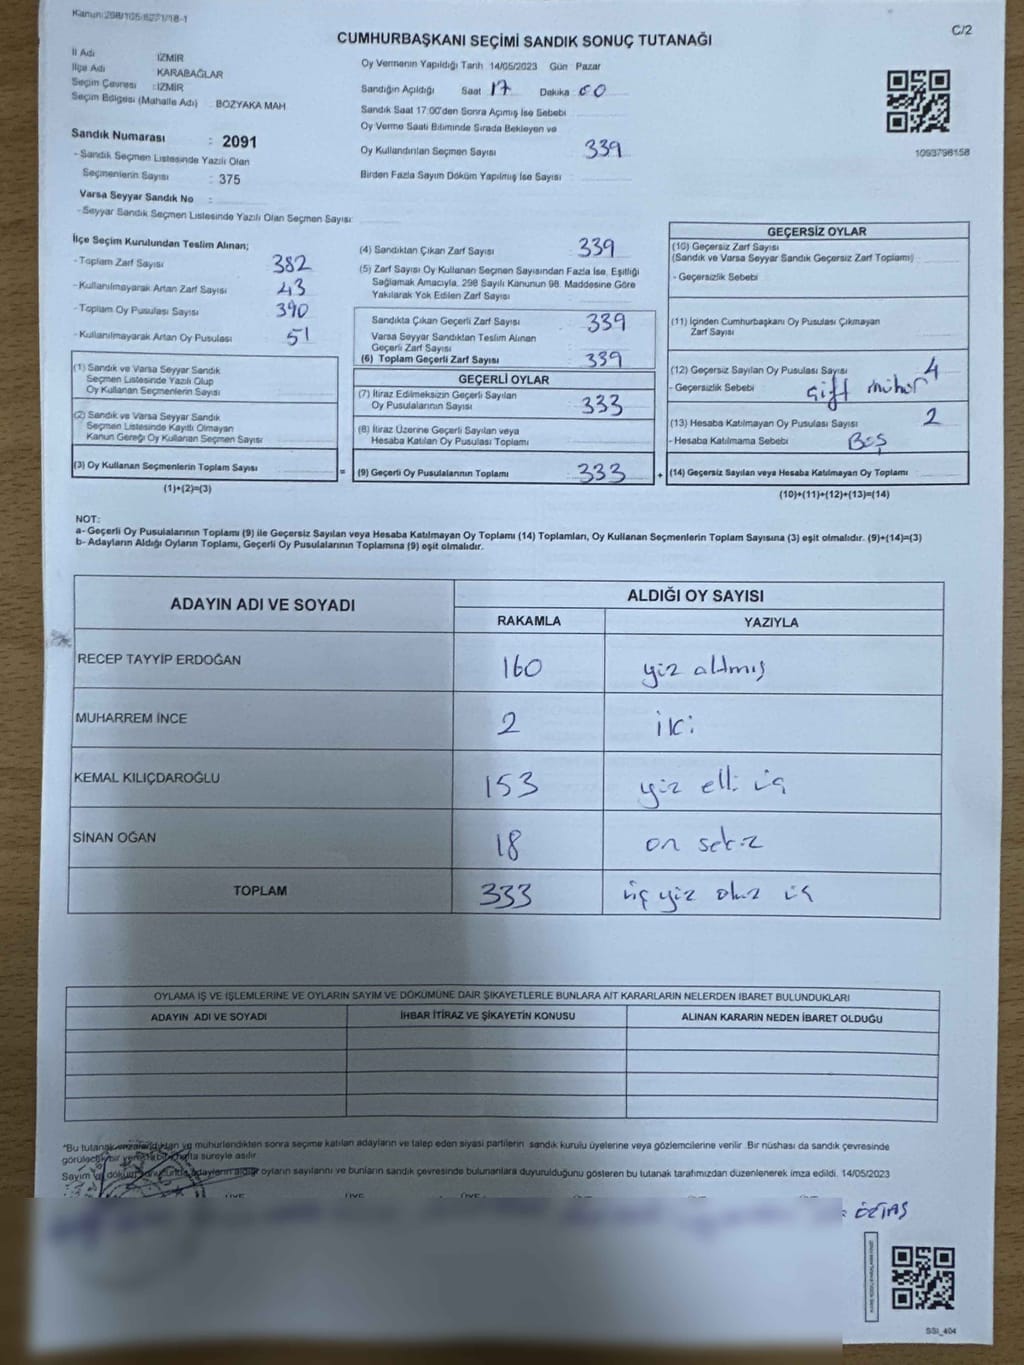 Kanun:298/105
C/2
CUMHURBAŞKANI SEÇİMİ SANDIK SONUÇ TUTANAĞI
İl Adı : İZMİR
İlçe Adı : KARABAĞLAR
Seçim Çevresi : İZMİR
Seçim Bölgesi (Mahalle Adı) : BOZYAKA MAH
Sandık Numarası : 2091
- Sandık Seçmen Listesinde Yazılı Olan
Seçmenlerin Sayısı : 375
Varsa Seyyar Sandık No :
- Seyyar Sandık Seçmen Listesinde Yazılı Olan Seçmen Sayısı:
Oy Vermenin Yapıldığı Tarih 14/05/2023 Gün Pazar
Sandığın Açıldığı Saat 17 Dakika 00
Sandık Saat 17:00'den Sonra Açımış İse Sebebi
Oy Verme Saati Bitiminde Sırada Bekleyen ve
Oy Kullandırılan Seçmen Sayısı 339
Birden Fazla Sayım Döküm Yapılmış İse Sayısı
1093798158
İlçe Seçim Kurulundan Teslim Alınan;
- Toplam Zarf Sayısı 382
- Kullanılmayarak Artan Zarf Sayısı 43
- Toplam Oy Pusulası Sayısı 390
- Kullanılmayarak Artan Oy Pusulası 51
(1) Sandık ve Varsa Seyyar Sandık
Seçmen Listesinde Yazılı Olup
Oy Kullanan Seçmenlerin Sayısı
(2) Sandık ve Varsa Seyyar Sandık
Seçmen Listesinde Kayıtlı Olmayan
Kanun Gereği Oy Kullanan Seçmen Sayısı
(3) Oy Kullanan Seçmenlerin Toplam Sayısı =
(1)+(2)=(3)
(4) Sandıktan Çıkan Zarf Sayısı 339
(5) Zarf Sayısı Oy Kullanan Seçmen Sayısından Fazla İse, Eşitliği
Sağlamak Amacıyla, 298 Sayılı Kanunun 98. Maddesine Göre
Yakılarak Yok Edilen Zarf Sayısı
Sandıkta Çıkan Geçerli Zarf Sayısı 339
Varsa Seyyar Sandıktan Teslim Alınan
Geçerli Zarf Sayısı
(6) Toplam Geçerli Zarf Sayısı 339
GEÇERLİ OYLAR
(7) İtiraz Edilmeksizin Geçerli Sayılan
Oy Pusulalarının Sayısı 333
(8) İtiraz Üzerine Geçerli Sayılan veya
Hesaba Katılan Oy Pusulası Toplamı
(9) Geçerli Oy Pusulalarının Toplamı 333 +
GEÇERSİZ OYLAR
(10) Geçersiz Zarf Sayısı
(Sandık ve Varsa Seyyar Sandık Geçersiz Zarf Toplamı)
- Geçersizlik Sebebi
(11) İçinden Cumhurbaşkanı Oy Pusulası Çıkmayan
Zarf Sayısı
(12) Geçersiz Sayılan Oy Pusulası Sayısı 4
- Geçersizlik Sebebi çift mühür
(13) Hesaba Katılmayan Oy Pusulası Sayısı 2
- Hesaba Katılmama Sebebi Boş
(14) Geçersiz Sayılan veya Hesaba Katılmayan Oy Toplamı
(10)+(11)+(12)+(13)=(14)
NOT:
a- Geçerli Oy Pusulalarının Toplamı (9) ile Geçersiz Sayılan veya Hesaba Katılmayan Oy Toplamı (14) Toplamları, Oy Kullanan Seçmenlerin Toplam Sayısına (3) eşit olmalıdır. (9)+(14)=(3)
b- Adayların Aldığı Oyların Toplamı, Geçerli Oy Pusulalarının Toplamına (9) eşit olmalıdır.
ADAYIN ADI VE SOYADI
ALDIĞI OY SAYISI
RAKAMLA YAZIYLA
RECEP TAYYİP ERDOĞAN 160 yüz altmış
MUHARREM İNCE 2 iki
KEMAL KILIÇDAROĞLU 153 yüz elli üç
SİNAN OĞAN 18 on sekiz
TOPLAM 333 üç yüz otuz üç
OYLAMA İŞ VE İŞLEMLERİNE VE OYLARIN SAYIM VE DÖKÜMÜNE DAİR ŞİKAYETLERLE BUNLARA AİT KARARLARIN NELERDEN İBARET BULUNDUKLARI
ADAYIN ADI VE SOYADI İHBAR İTİRAZ VE ŞİKAYETİN KONUSU ALINAN KARARIN NEDEN İBARET OLDUĞU
"Bu tutanak ve mühürlendikten sonra seçime katılan adayların ve talep eden siyasi partilerin sandık kurulu üyelerine veya gözlemcilerine verilir. Bir nüshası da sandık çevresinde
bir hafta süreyle asılır.
Sayım adayların aldığı oyların sayılarını ve bunların sandık çevresinde bulunanlara duyurulduğunu gösteren bu tutanak tarafımızdan düzenlenerek imza edildi. 14/05/2023
ÜYE ÜYE ÜYE
SSI_404